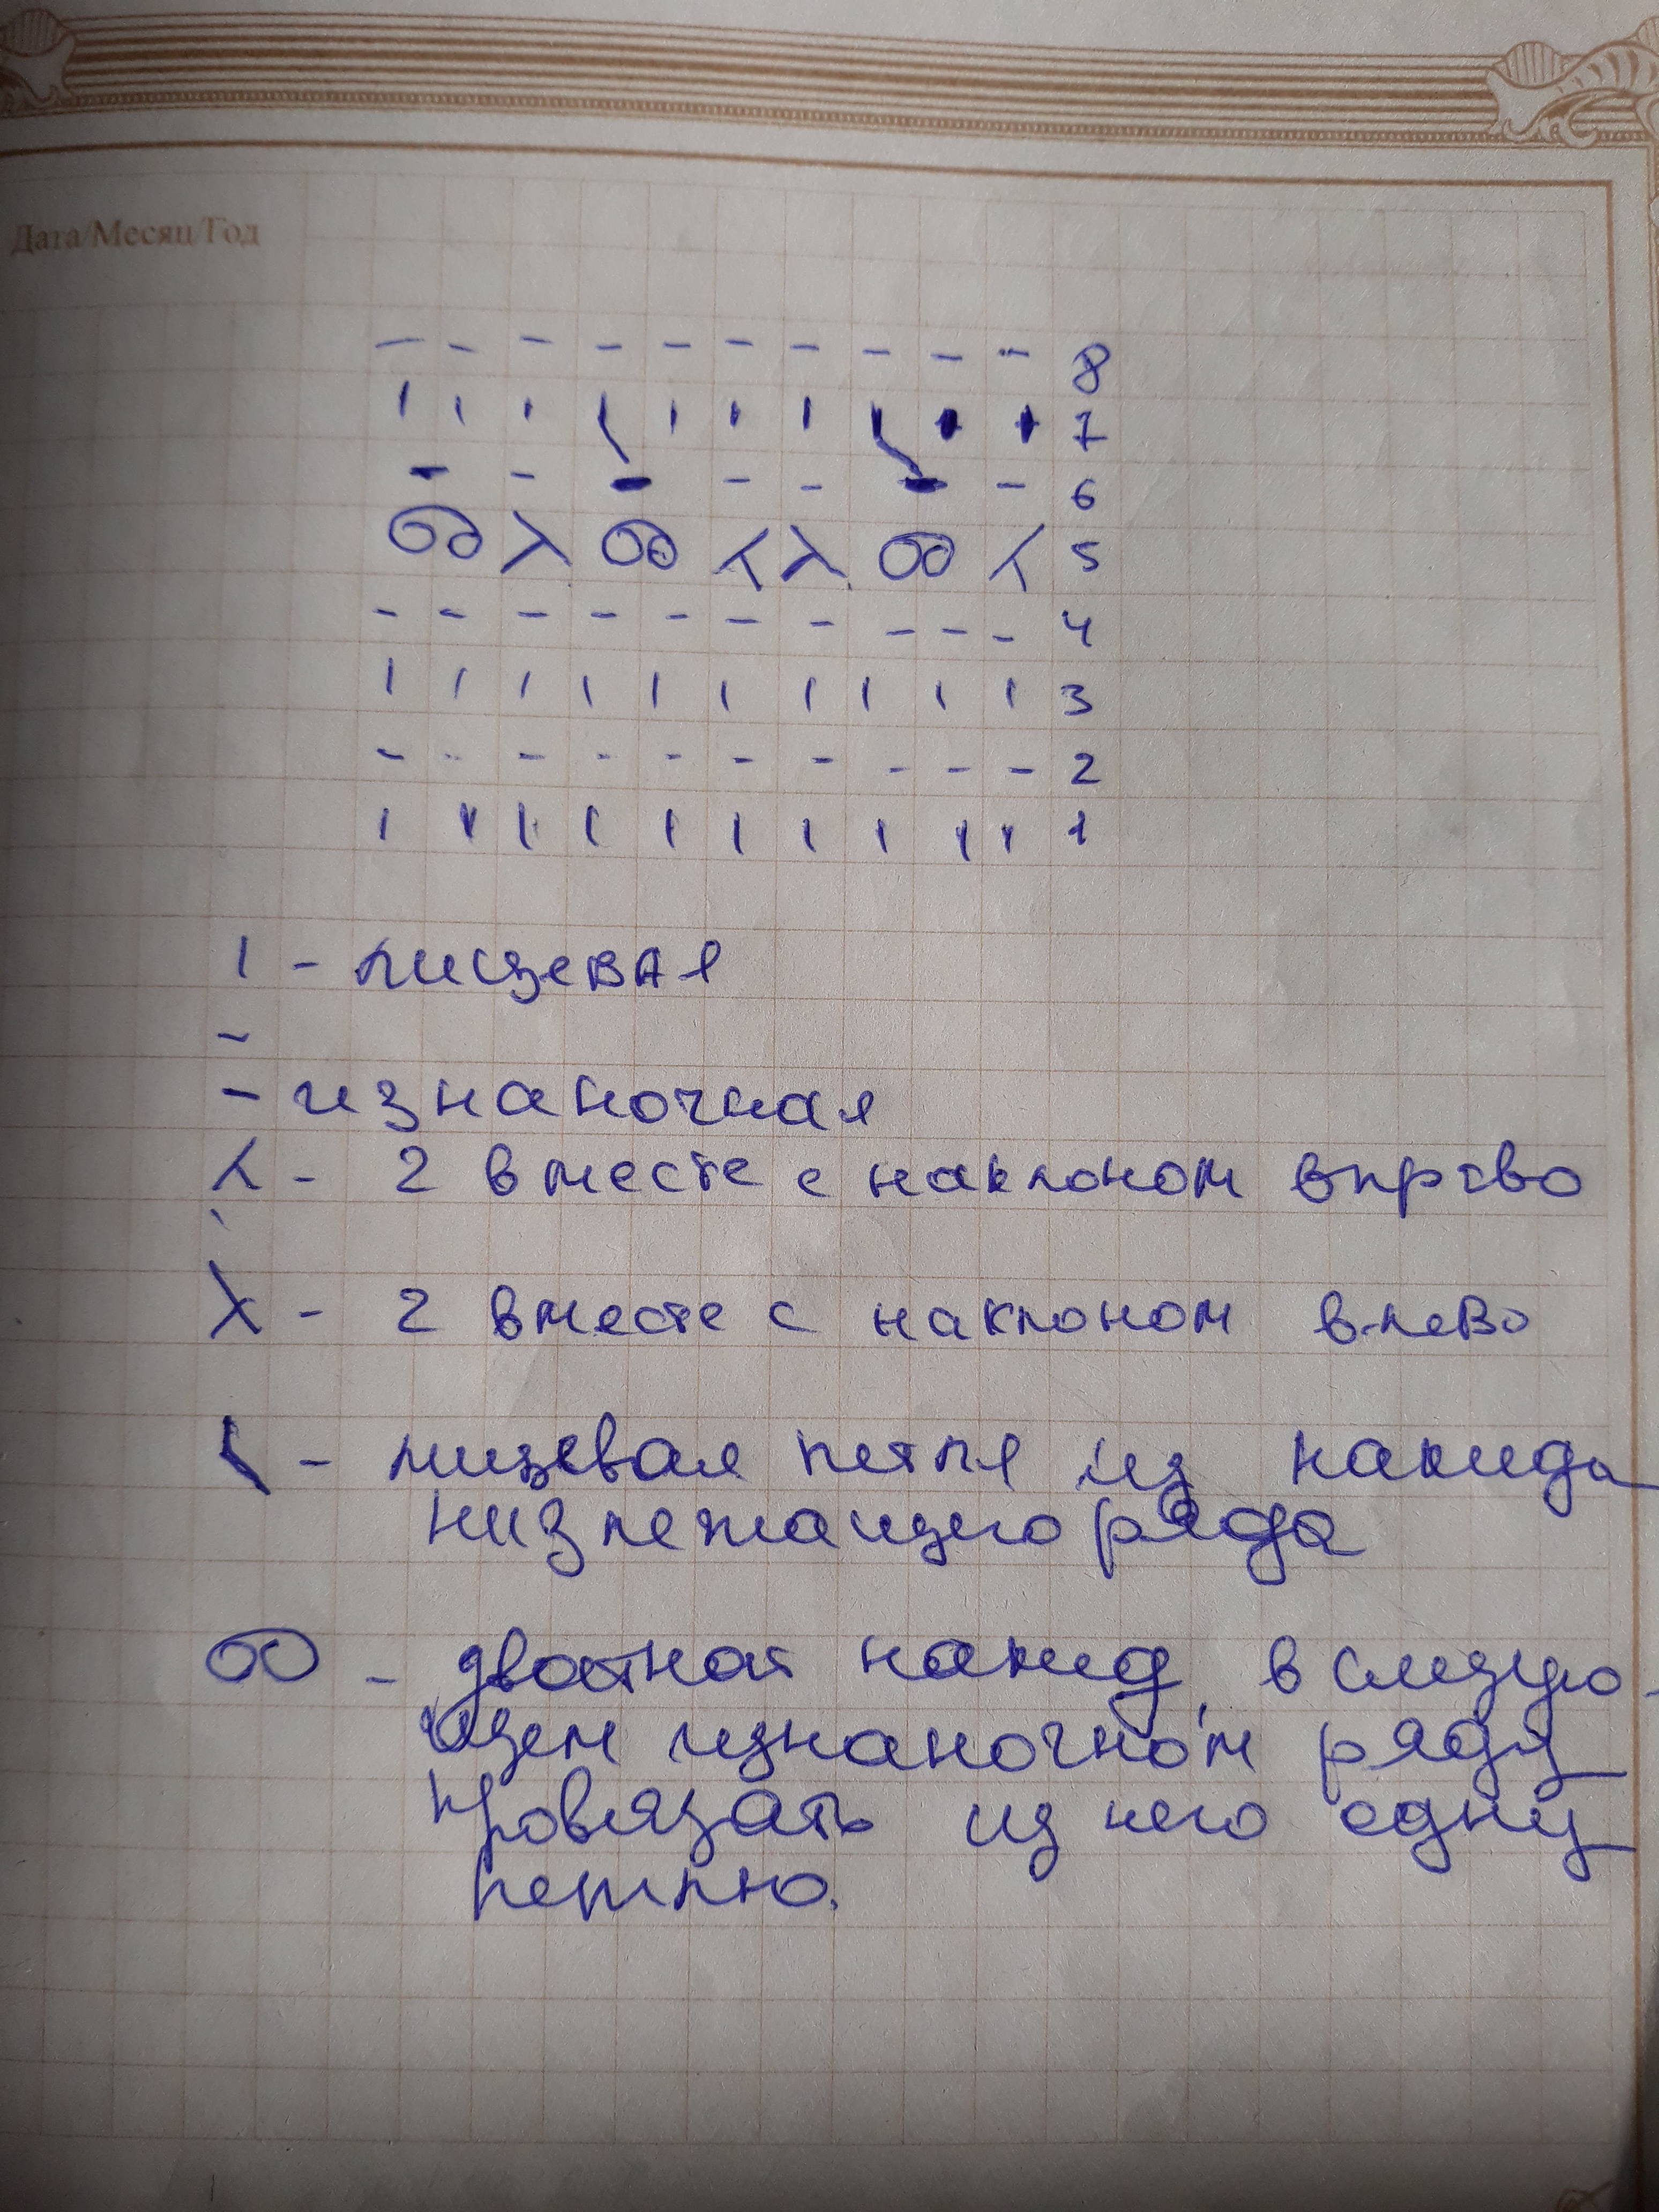 Дата/Месяц/Год
– – – – – – – – – – 8
| | | \ | | | \ | | 7
– – – – – – – 6
ꝏ λ ꝏ ⅄ λ ꝏ ⅄ 5
– – – – – – – – – – 4
| | | | | | | | | | 3
– – – – – – – – – – 2
| | | | | | | | | | 1
| – лицевая
–
– изнаночная
⅄ – 2 вместе с наклоном вправо
λ – 2 вместе с наклоном влево
\ – лицевая петля из накида
низлежащего ряда
ꝏ – двойной накид, в следую-
щем изнаночном ряду
провязать из него одну
петлю.